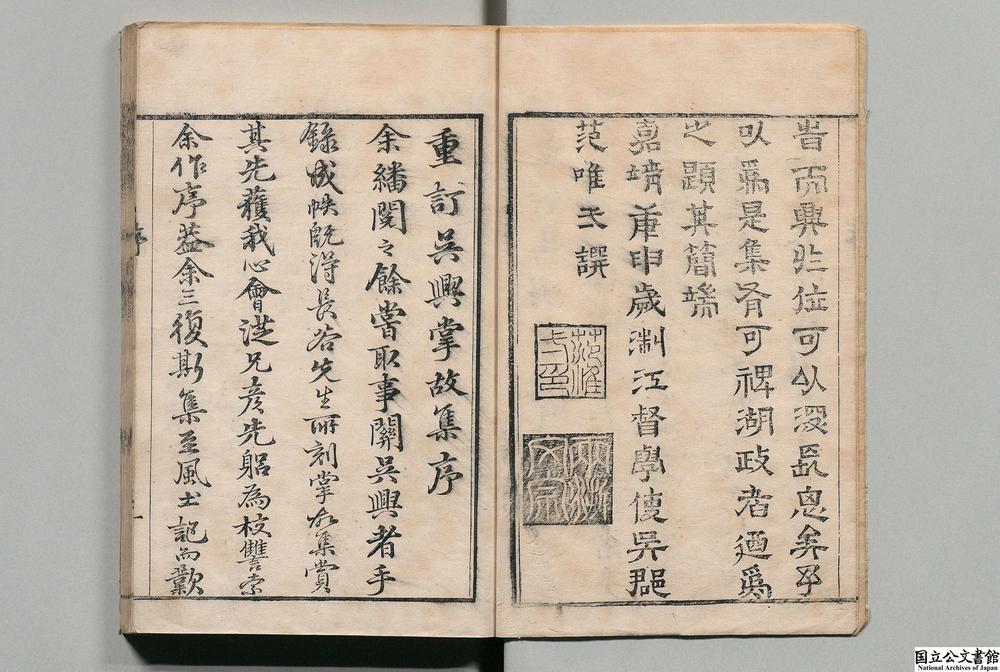 耆而興非位可以潤民㤙矣予
以爲是集有可裨湖政者迺爲
之題其簡端
嘉靖庚申歲浙江督學使吳郡
范唯一譔
重訂吳興掌故集序
余繙閱之餘嘗取事關吳興者手
錄成帙旣得長谷先生所刻掌故集賞
其先獲我心會從兄彥先躬為校讐索
余作序葢余三復斯集至風土記而歎
序
国立公文書館
National Archives of Japan